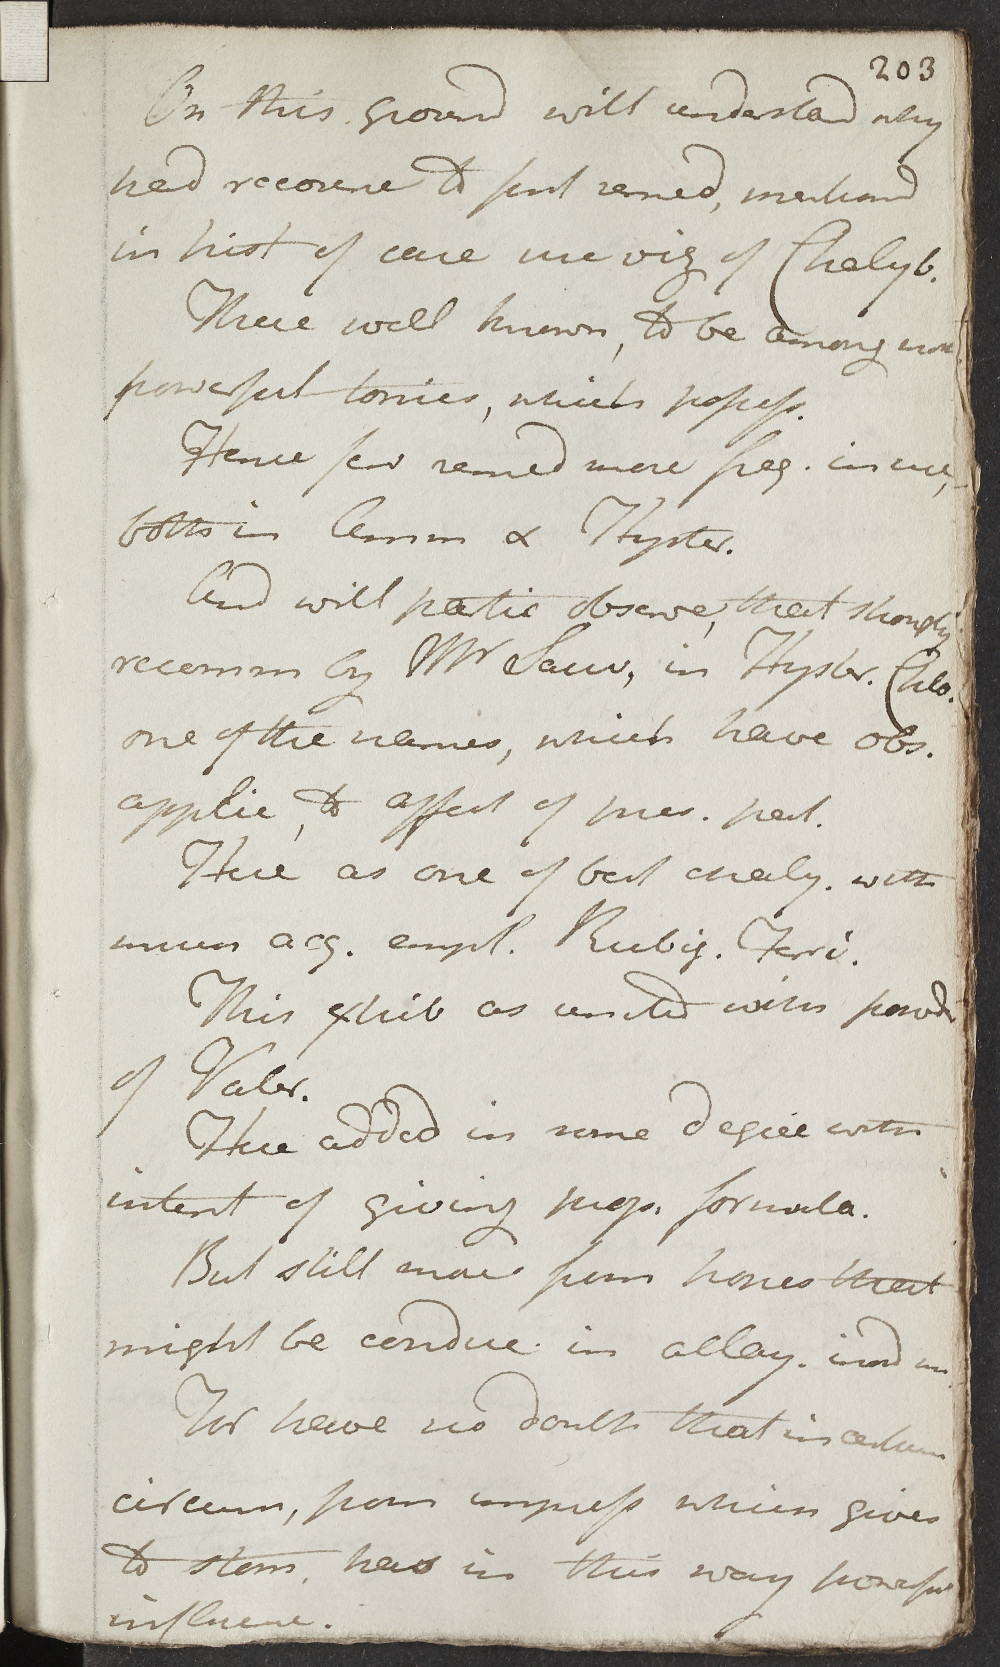 203
On this ground will understand why
had recourse to first remed, mentiond
in hist of case use viz of Chalyb.
These well known, to be among most
powerful tonics, which possess.
Hence few remed more freq. in use,
both in Amen & Hyster.
And will partic observe, that strongly
recomm by Mr Sauv, in Hyster. Chlo.
one of the names, which have obs.
applic, to affect of pres. pat.
Here as one of best chaly. with
mucus acq. empl. Rubig. Ferri.
This exhib as united with powder
of Valer.
Here added in some degree with
intent of giving prop. formula.
But still more from hopes that
might be conduc. in allay. inord
For have no doubt that in certain
circum, from impress which gives
to stom, has in this way powerful
influence.